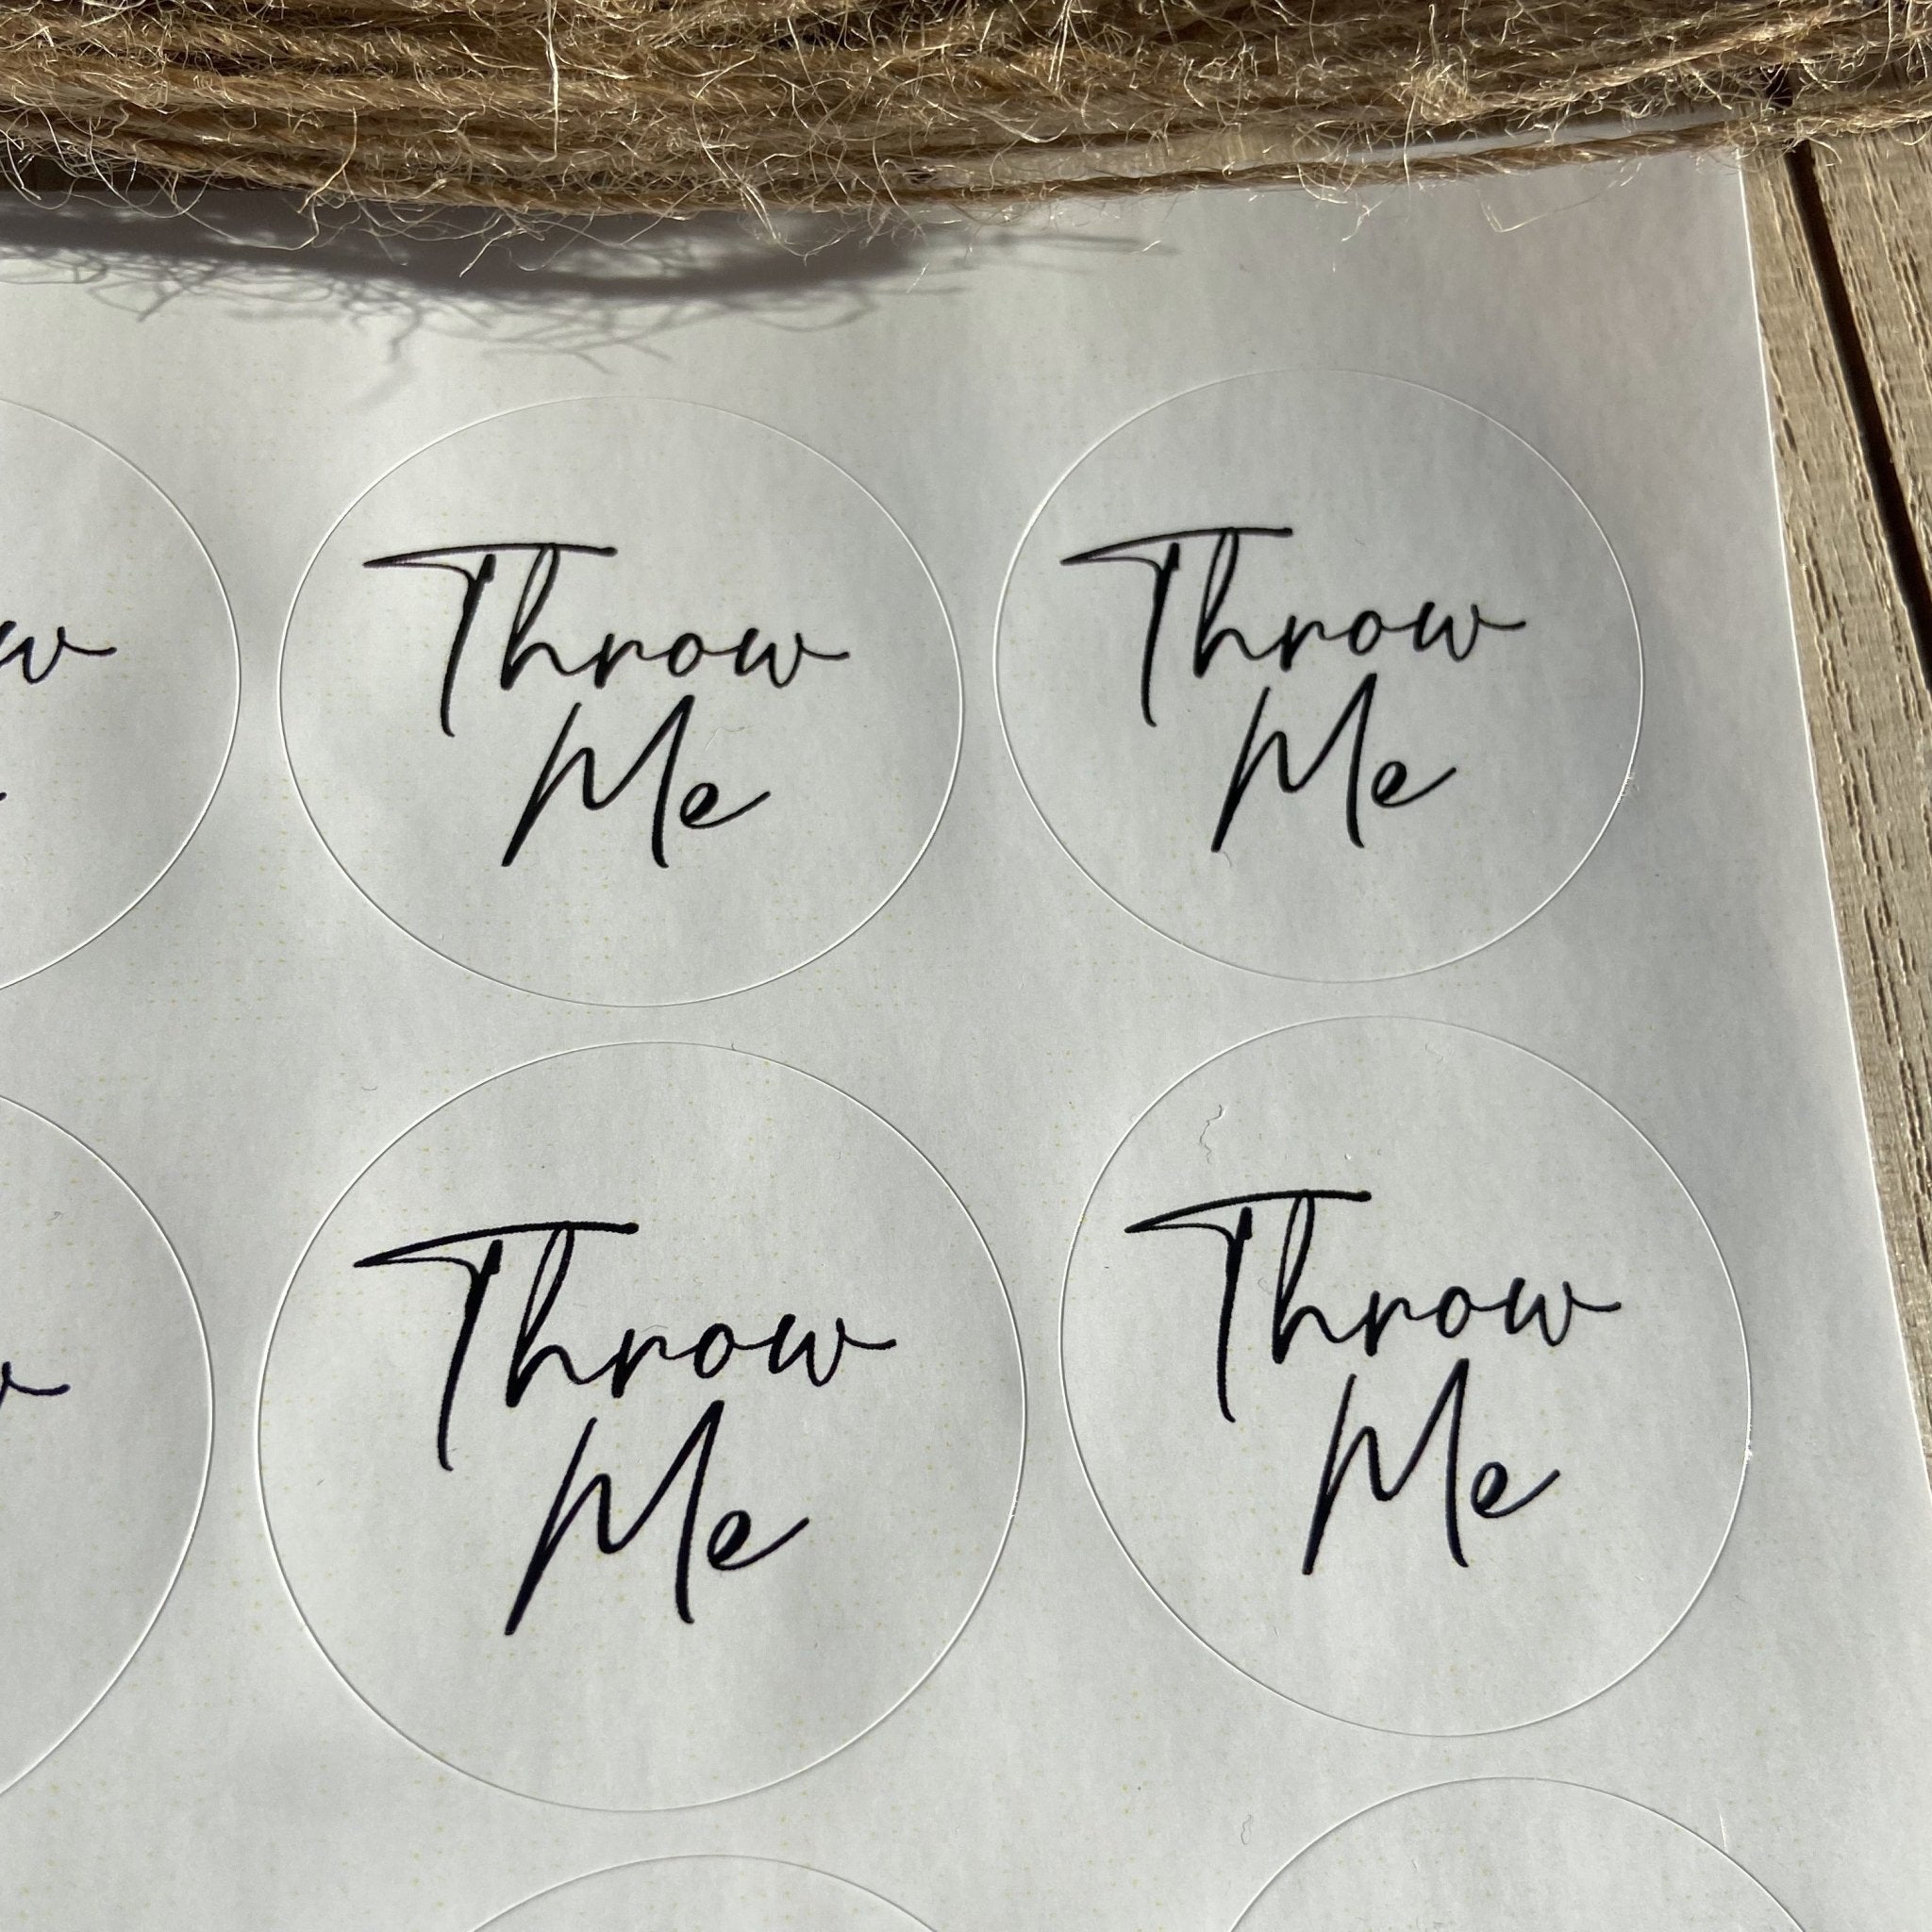 Throw
Me
Throw
Me
Throw
Me
Throw
Me